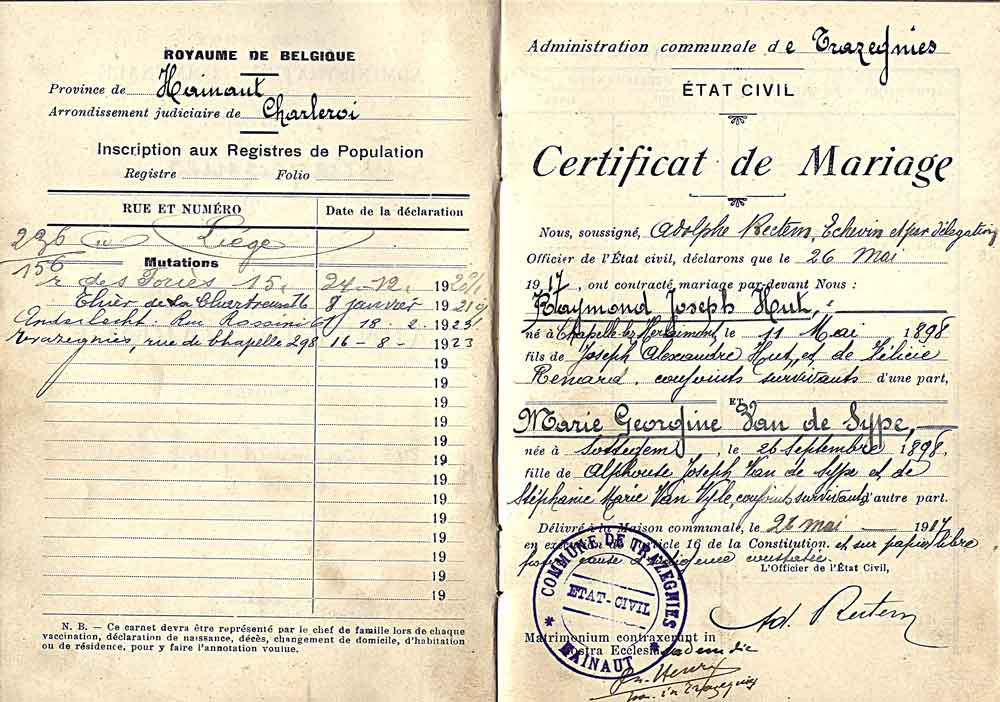 ROYAUME DE BELGIQUE
Province de Hainaut
Arrondissement judiciaire de Charleroi
Inscription aux Registres de Population
Registre Folio
RUE ET NUMÉRO Date de la déclaration
236 Liége
156 Mutations
r des 15. 24-12. 1920
Thier de la Chartreuse 16 8 janvier 1921
Anderlecht. Rue Rossini 18.2.1923
Trazegnies, rue de Chapelle 298 16-8-1923
19
19
19
19
19
19
19
19
19
19
19
19
19
N. B. — Ce carnet devra être représenté par le chef de famille lors de chaque
vaccination, déclaration de naissance, décès, changement de domicile, d'habitation
ou de résidence, pour y faire l'annotation voulue.
Administration communale de Trazegnies
ÉTAT CIVIL
Certificat de Mariage
Nous, soussigné, Adolphe Rectem, Echevin et par délégation
Officier de l'État civil, déclarons que le 26 Mai
1917, ont contracté mariage par-devant Nous :
Raymond Joseph Hut,
né à Chapelle-lez-Herlaimont, le 11 Mai 1898
fils de Joseph Alexandre Hut, et de Félicie
Renard, conjoints survivants d'une part,
ET
Marie Georgine Van de Sype,
née à Sottegem, le 26 Septembre 1898,
fille de Alphonse Joseph Van de Sype et de
Stéphanie Marie Van Vyle, conjoints survivants d'autre part.
Délivré à la Maison communale, le 26 mai 1917
en exécution de l'article 16 de la Constitution. et sur papier libre
pour cause d'indigence constatée
L'Officier de l'État Civil,
Ad. Rectem
COMMUNE DE TRAZEGNIES
ETAT-CIVIL
* HAINAUT *
Matrimonium contraxerunt in
nostra Ecclesia eadem die
Henry
in Trazegnies